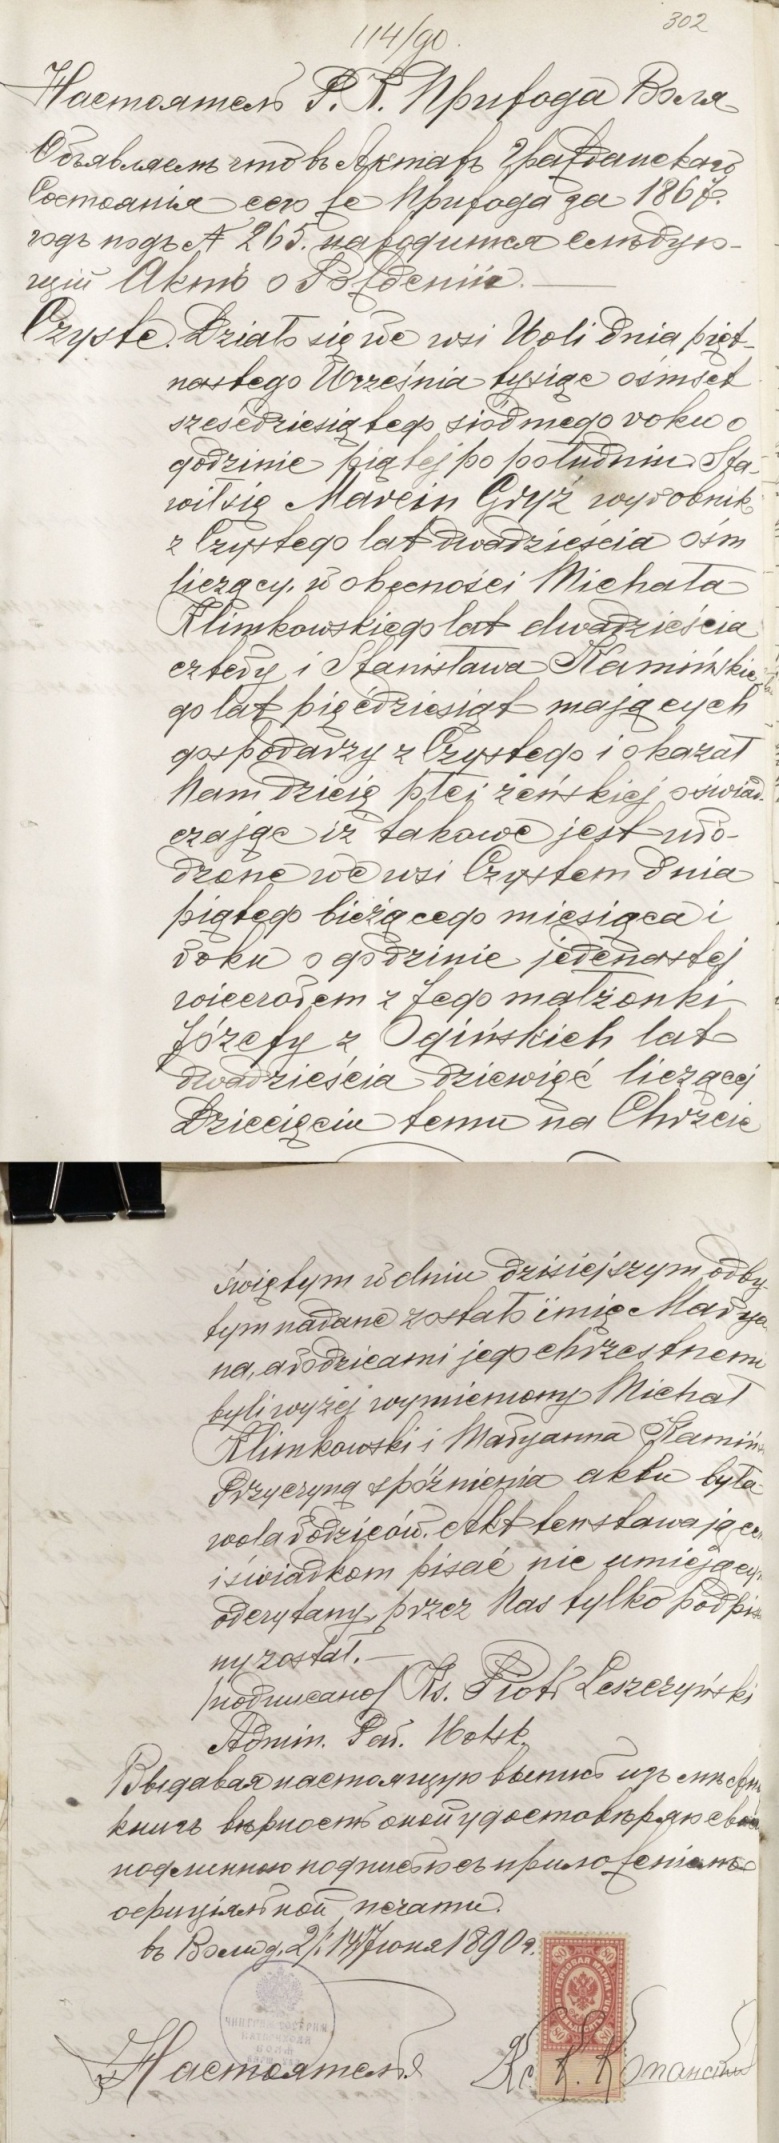 302
114/90.
Настоятель Р. К. Прихода Воля
Объявляетъ что въ Актахъ Гражданскаго
Состоянія сего же Прихода за 1867.
годъ подъ № 265. находится слѣдую-
щій Актъ о Рожденіи.
Czyste. Działo się we wsi Woli dnia pięt-
nastego Września tysiąc ośmset
sześćdziesiątego siódmego roku o
godzinie piątej po południu. Sta-
wił się Marcin Gryż wyrobnik
z Czystego lat dwadzieścia ośm
liczący, w obecności Michała
Klimkowskiego lat dwadzieścia
cztery i Stanisława Kamińskie-
go lat pięćdziesiąt mających
gospodarzy z Czystego i okazał
Nam dziecię płci żeńskiej oświad-
czając iż takowe jest uro-
dzone we wsi Czystem dnia
piątego bieżącego miesiąca i
roku o godzinie jedenastej
wieczorem z Jego małżonki
Józefy z Ogińskich lat
dwadzieścia dziewięć liczącej
Dziecięciu temu na Chrzcie
świętym w dniu dzisiejszym odby-
tym nadane zostało imię Marya-
na, a rodzicami jego chrzestnemi
byli wyżej wymieniony Michał
Klimkowski i Maryanna Kamińs
Przyczyną spóźnienia aktu była
wola rodziców. Akt ten stawające
i świadkom pisać nie umiejącym
odczytany, przez Nas tylko podpisa
ny został.
/подписано/ Ks. Piotr Leszczyński
Admin. Par. Wolsk.
Выдавая настоящую выпись изъ мѣстн
книгъ вѣрность оной удостовѣряю свое
подлинною подписью съ приложеніемъ
оффиціяльной печати.
въ Воли д. 2/14 Іюня 1890 г.
80 80
ГЕРБОВАЯ МАРКА
80 80
Настоятель
Кс. К.